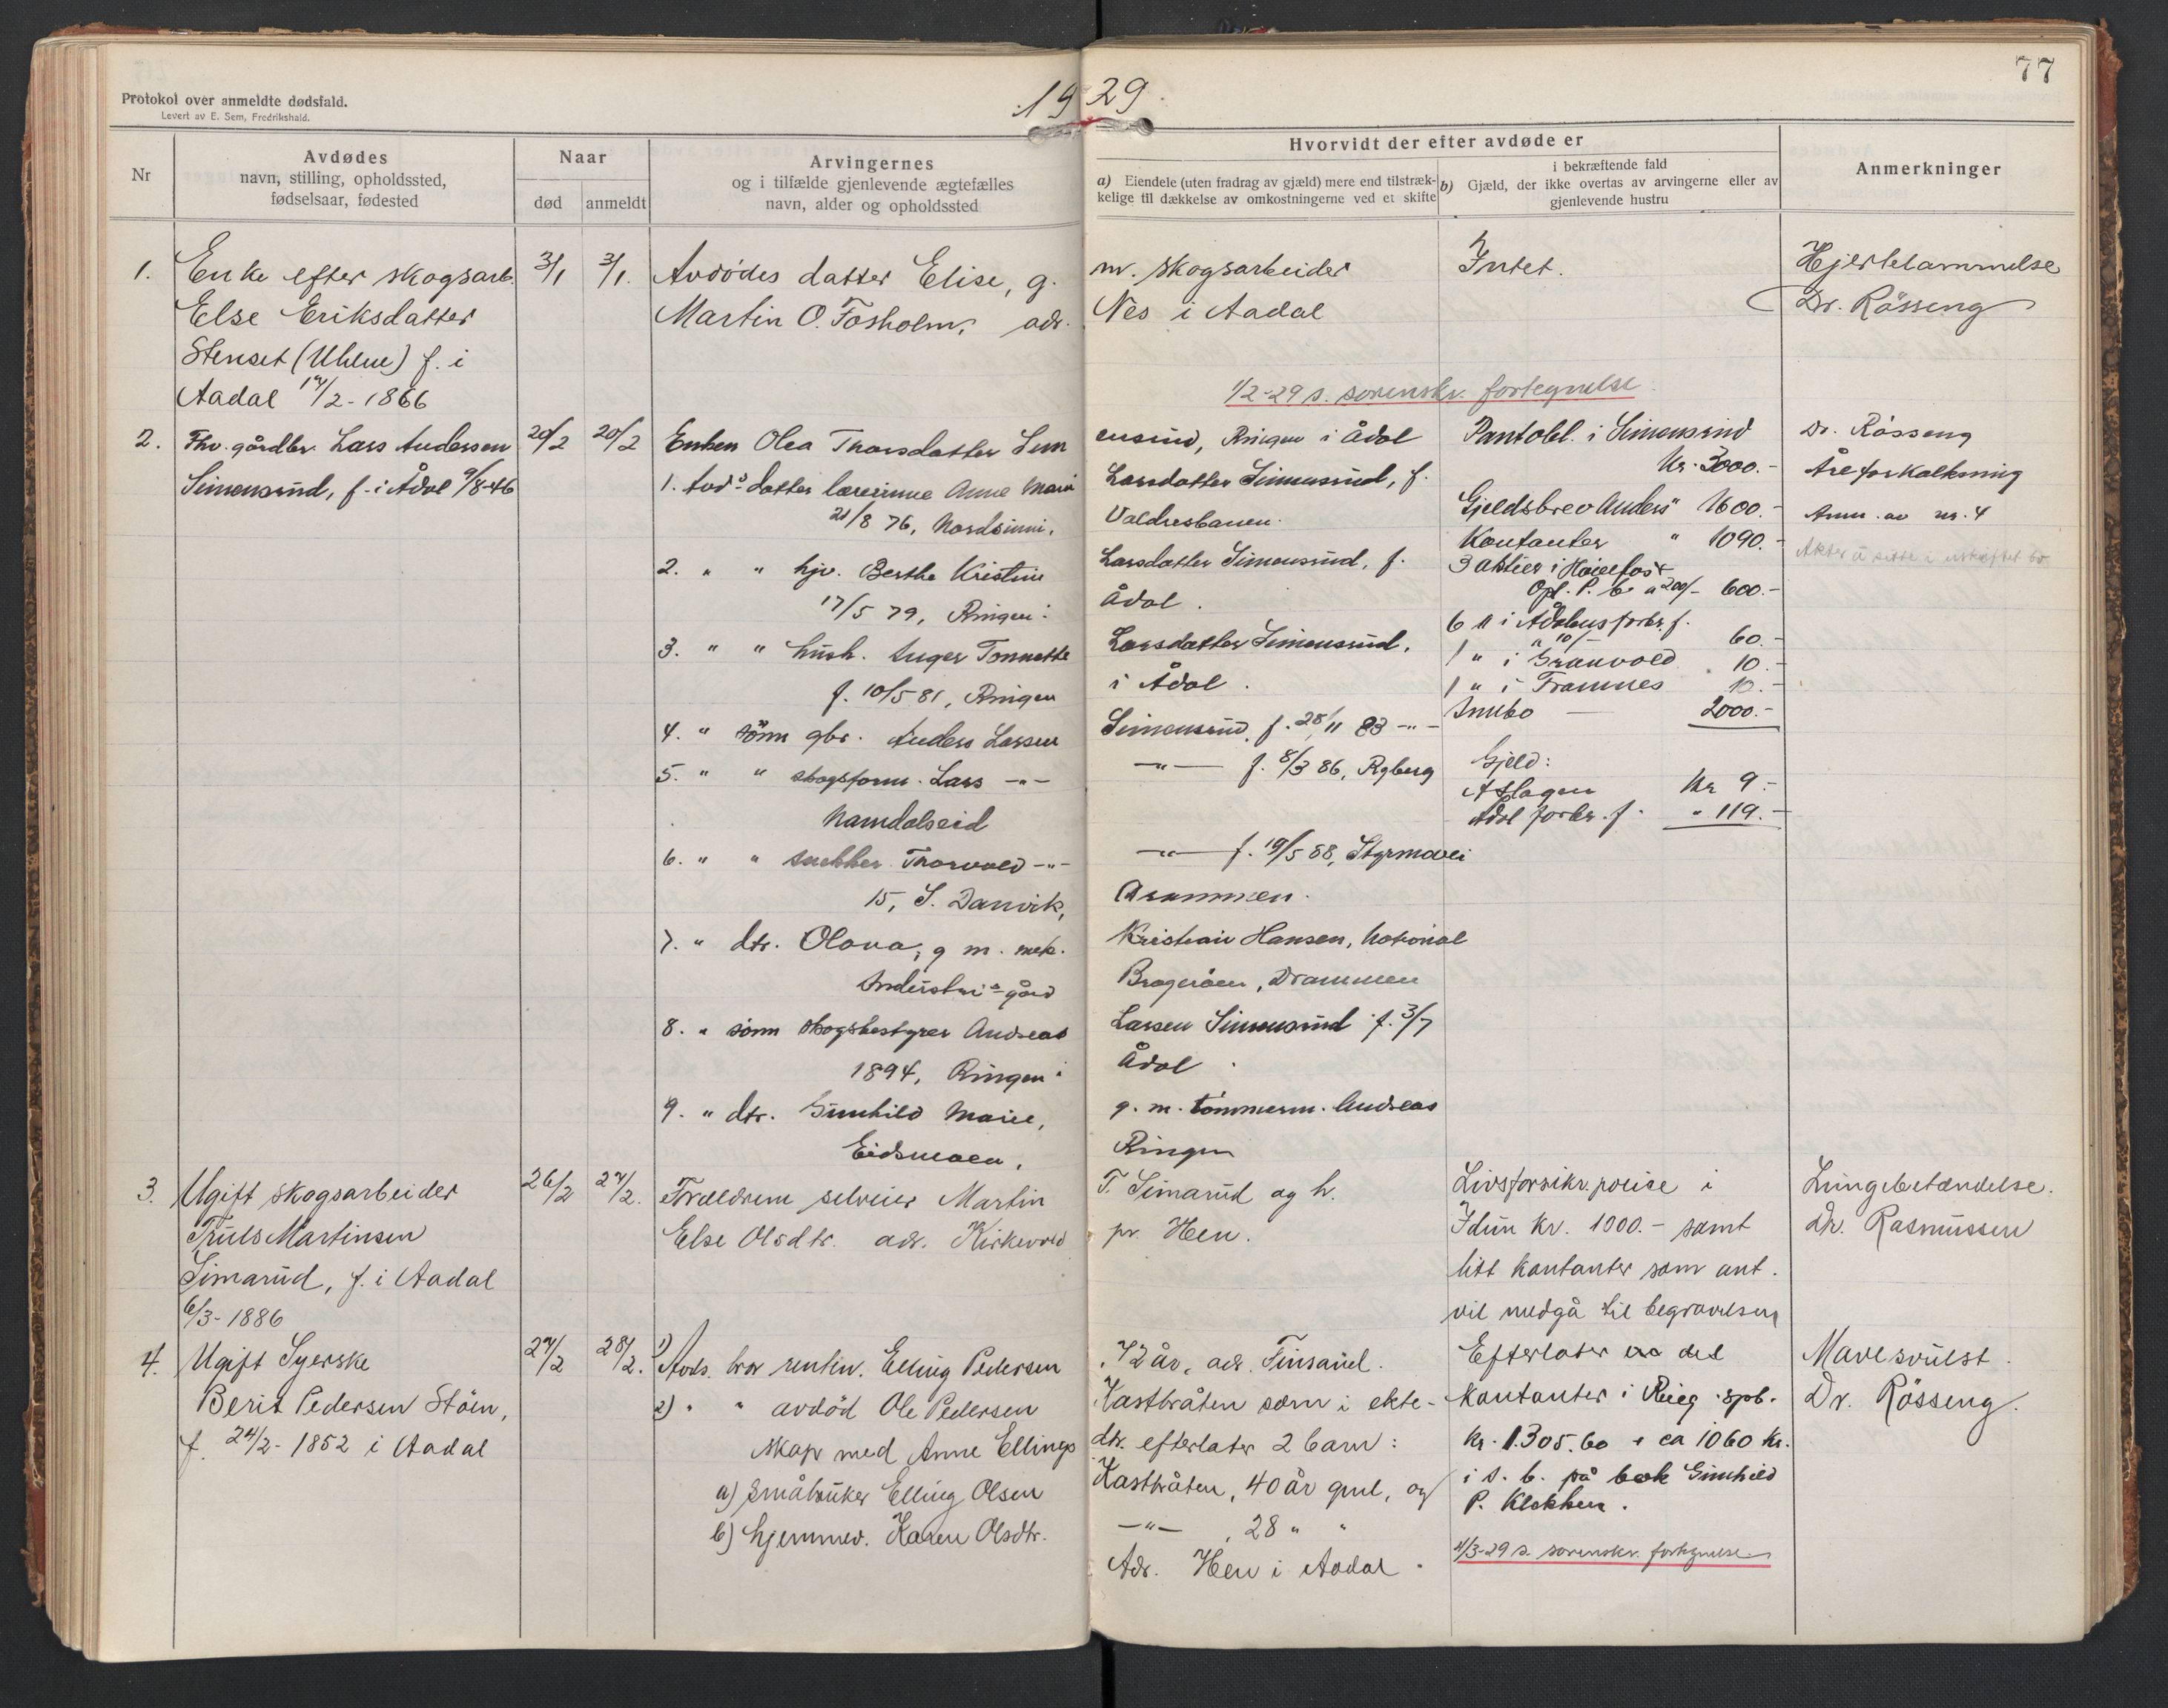 77
Protokol over anmeldte dødsfald.
Levert av E. Sem, Fredrikshald.
1929.
Nr
Avdødes
navn, stilling, opholdssted,
fødselsaar, fødested
Naar
død
anmeldt
Arvingernes
og i tilfælde gjenlevende ægtefælles
navn, alder og opholdssted
Hvorvidt der efter avdøde er
a) Eiendele (uten fradrag av gjæld) mere end tilstræk-
kelige til dækkelse av omkostningerne ved et skifte
i bekræftende fald
b) Gjæld, der ikke overtas av arvingerne eller av
gjenlevende hustru
Anmerkninger
1. Enke efter skogsarb. 3/1 3/1. Avdødes datter Elise, g. m. skogsarbeider Intet. Hjertelammelse
Else Eriksdatter Martin O. Fosholm, adr. Nes i Aadal Dr. Rösseng
Stenset (Uhlue) f. i
Aadal 17/2-1866
1/2-29 s. sorenskr. fortegnelse.
2. Fhv. gårdbr. Lars Anderssen 20/2 20/2 Enken Olea Thorsdatter Simensrud, Ringen i Ådal Pantobl. i Simensrud Dr. Rösseng
Simensrud, f. i Ådal 9/8-46 1. Avds datter lærerinne Anne Marie Larsdatter Simensrud, f. Kr. 3000.- Åreforkalkning
21/8 76, Nordsinni, Valdresbanen. Gjeldsbrev Anders " 1600.- Anm. av nr. 4
Kontanter " 1090.-
2. " " hjv. Berthe Kristine Larsdatter Simensrud, f. 3 aktier i Hönefoss
17/5 79, Ringen i Ådal. Opl. P. b. a 200/- 600.-
6 " i Ådalens forbr. f.
a 10/- 60.-
3. " " hush. Inger Tonnette Larsdatter Simensrud, 1 " i Granvold " 10.-
f. 10/5 81, Ringen i Ådal. 1 " i Framnes 10.-
Innbo 2000.-
4. " sönn gbr. Anders Larsen Simensrud, f. 28/11 83 -"-
5. " " skogsform. Lars -"- -"- f. 8/3 86, Ryberg Gjeld:
Namdalseid Aslagen Kr 9.-
Ådal forbr. f. " 119.-
6. " " snekker Thorvald -"- -"- f. 19/5 88, Styrmovei
15, S. Danvik, Drammen.
7. " dtr. Olava, g m. mek. Kristian Hansen, National
Industri-gård Bragerøen, Drammen
8. " sönn skogsbestyrer Andreas Larsen Simensrud f. 3/7
1894, Ringen i Ådal
9. " dtr. Gunhild Marie, g. m. tömmerm. Andreas
Eidsmoen, Ringen
3. Ugift skogsarbeider 26/2 27/2. Foreldrene selveier Martin T. Simarud og h. Livsforsikr.polise i Lungebetændelse.
Truls Martinsen Else Olsdtr. adr. Kirkevold pr. Hen. Idun kr. 1000.- samt Dr. Rasmussen
Simarud, f. i Aadal litt kontanter som ant.
6/3-1886 vil medgå til begravelsen
4. Ugift Syerske 27/2 28/2. 1) Avds. bror rentin. Elling Pedersen, 72 år, adr. Finsand. Efterlater en del Mavesvulst.
Berit Pedersen Stöen, 2) " " avdöd Ole Pedersen Kastbråten som i ekte- kontanter i Ring. spb. Dr. Rösseng.
f. 24/2-1852 i Aadal skap med Anne Ellings dtr. efterlater 2 barn: kr. 1.305.60 + ca 1060 kr.
a) Småbruker Elling Olsen Kastbråten, 40 år gml, og i s. b. på bok Gunhild
P. Klekken.
b) hjemmev. Karen Olsdtr. -"-, 28 " "
Adr. Hen i Aadal. 4/3-29 s. sorenskr. fortegnelse